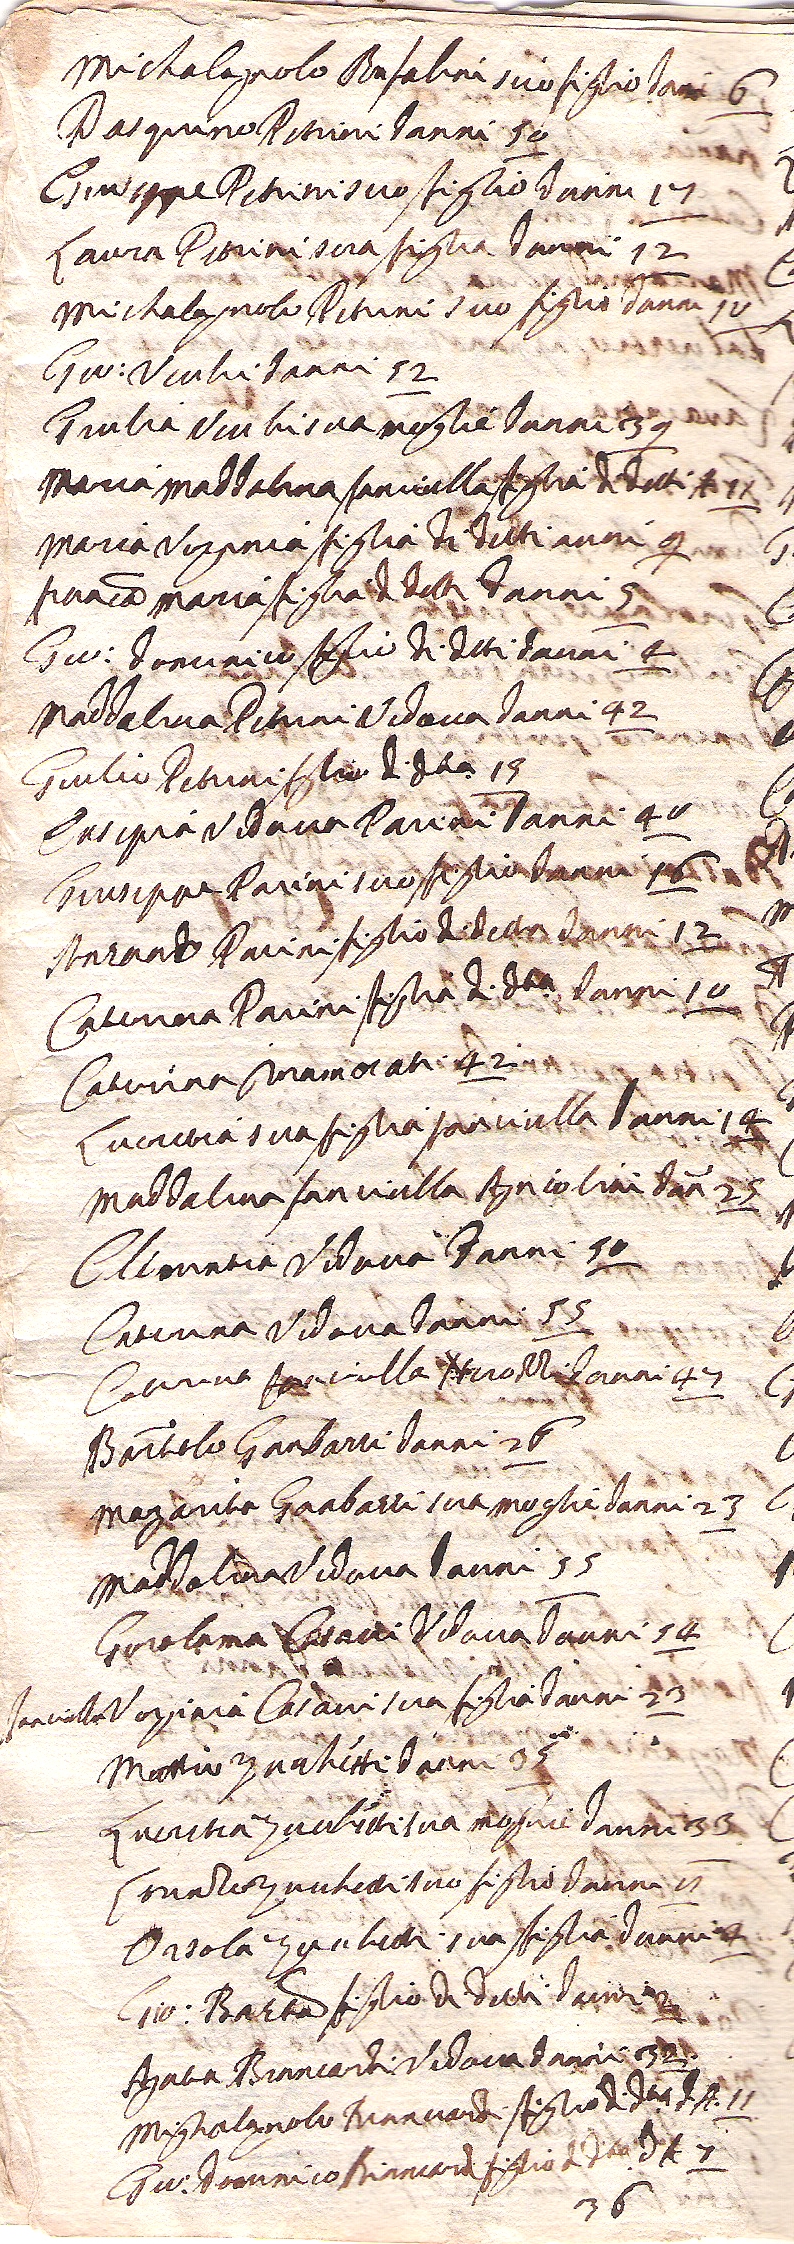 Michalagnolo Bufalini suo figlio danni 6
Pasquino Petrini danni 50
Giuseppe Petrini suo figlio danni 17
Laura Petrini sua figlia danni 12
Michalagnolo Petrini suo figlio danni 10
Gio: Vechi danni 52
Giulia Vechi sua moglie danni 39
Maria Maddalena fanciulla figlia di detti A 11
Maria Verginia figlia di detti anni 9
Franca Maria figlia di detti danni 5
Gio: Domenico figlio di detti danni 4
Maddalena Petrini Vidova danni 42
Giulio Petrini figlio di dta 15
Vidova Pacini danni 40
Giuseppe Pacini suo figlio danni 16
Pacini figlio di detta danni 12
Caterina Pacini figlia di dta danni 10
Caterina Inamorati 42
Lucretia sua figlia fanciulla danni 14
Maddalena fanciulla Agniolini dan 25
Clementia Vidova danni 50
Caterina Vidova danni 55
Caterina fanciulla danni 47
Bartolo Ganbacci danni 26
Magarita Ganbacci sua moglie danni 23
Maddalena Vidova danni 55
Girolama Casacci Vidova danni 54
fanciulla Verginia Casacci sua figlia danni 23
Mattio Zuchetti danni 35
Lucretia Zuchetti sua moglie danni 33
Zuchetti suo figlio danni 11
Orsola Zuchetti sua figlia danni 4
Gio: Batta figlio di detti danni 2
Agata Brancardi Vidova danni 32
Mighalagnolo Brancardi figlio di dta d A. 11
Gio: Domenico Brancardi figlio di dta d A 7
36